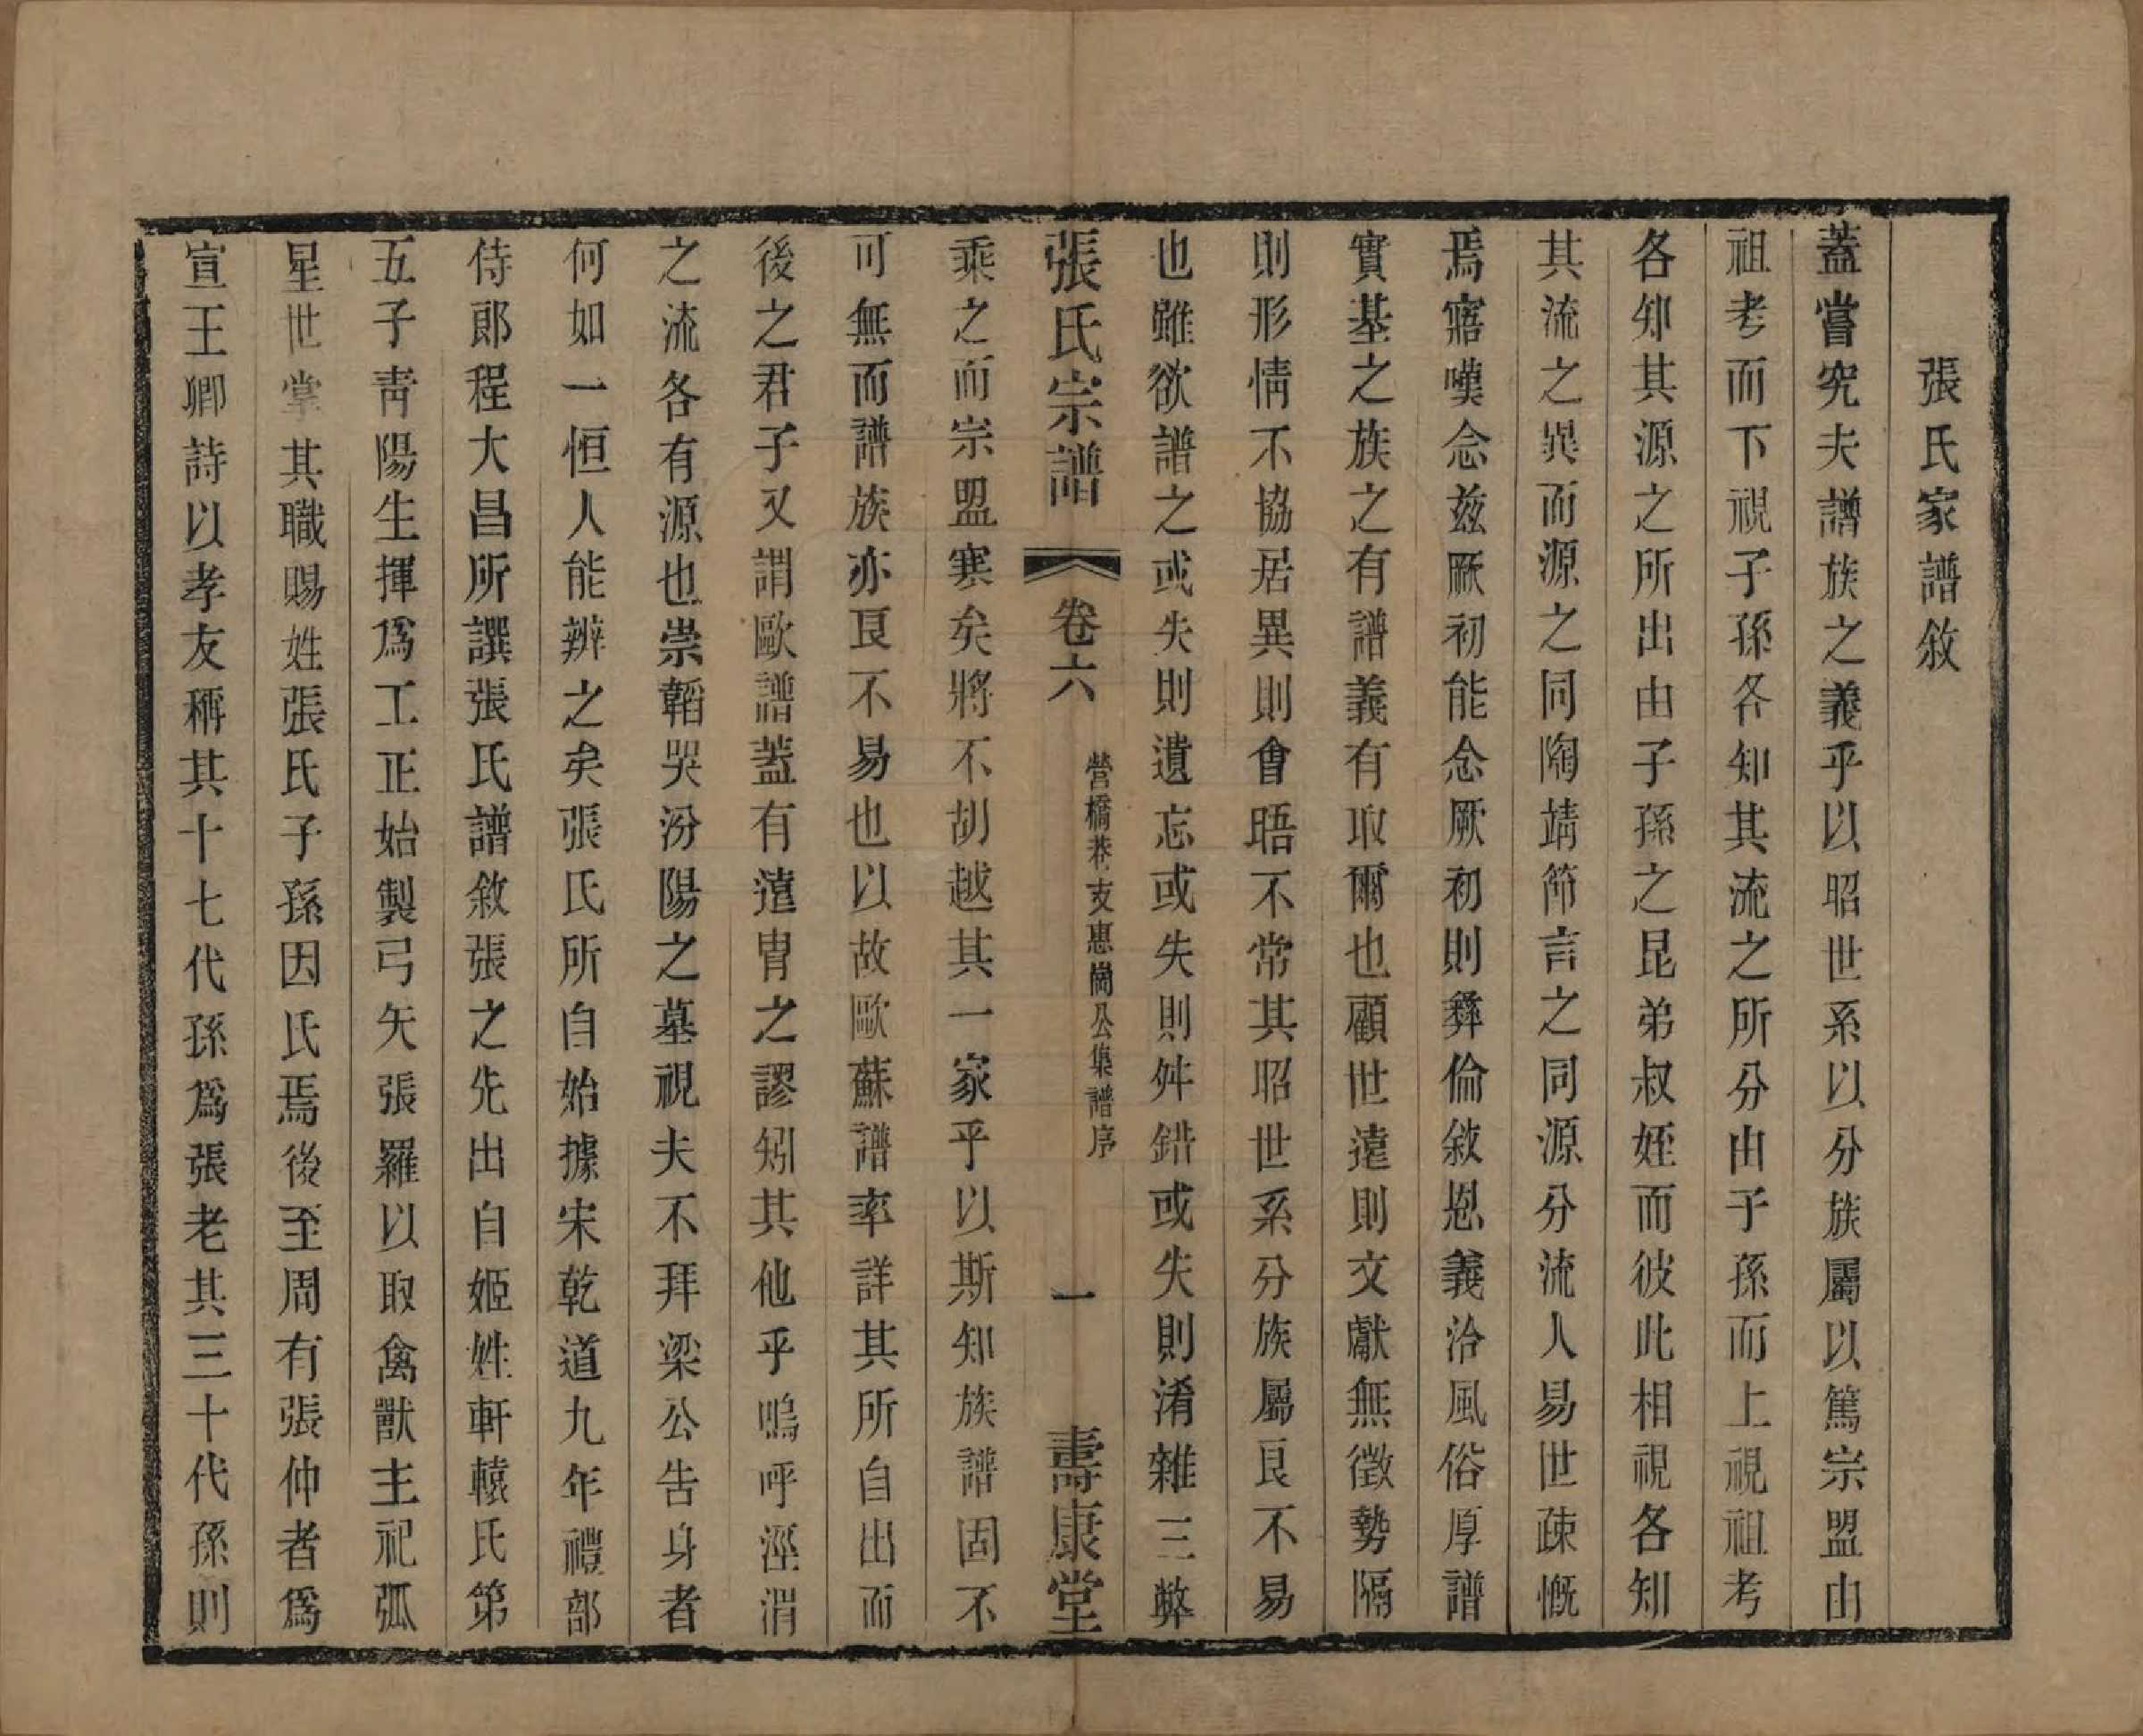 張氏家譜敘
蓋嘗究夫譜族之義乎以昭世系以分族屬以篤宗盟由
祖考而下視子孫各知其流之所分由子孫而上視祖考
各知其源之所出由子孫之昆弟叔姪而彼此相視各知
其流之異而源之同陶靖節言之同源分流人易世疎慨
焉寤嘆念兹厥初能念厥初則彝倫敘恩義洽風俗厚譜
實基之族之有譜義有取爾也顧世遠則文獻無徵勢隔
則形情不協居異則會晤不常其昭世系分族屬良不易
也雖欲譜之或失則遺忘或失則舛錯或失則淆雜三弊
張氏宗譜 卷六 營橋巷支惠崗公集譜序 一 壽康堂
乘之而宗盟寒矣將不胡越其一家乎以斯知族譜固不
可無而譜族亦良不易也以故歐蘇譜率詳其所自出而
後之君子又謂歐譜蓋有遠胄之謬矧其他乎嗚呼涇渭
之流各有源也崇韜哭汾陽之墓視夫不拜梁公告身者
何如一恒人能辨之矣張氏所自始據宋乾道九年禮部
侍郎程大昌所譔張氏譜敘張之先出自姬姓軒轅氏第
五子靑陽生揮爲工正始製弓矢張羅以取禽獸主祀弧
星世掌其職賜姓張氏子孫因氏焉後至周有張仲者爲
宣王卿詩以孝友稱其十七代孫爲張老其三十代孫則